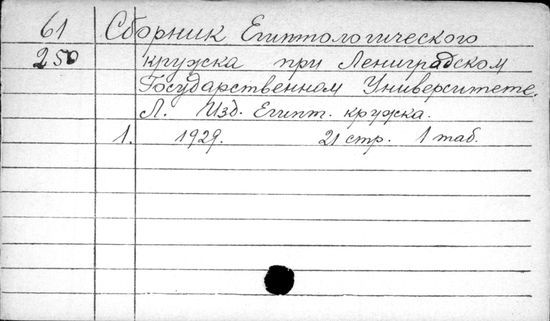 61 Сборник Египтологического
250 кружка при Ленинградском
Государственном Университете.
Л. Изд. Египт. кружка.
1. 1929. 21 стр. 1 таб.